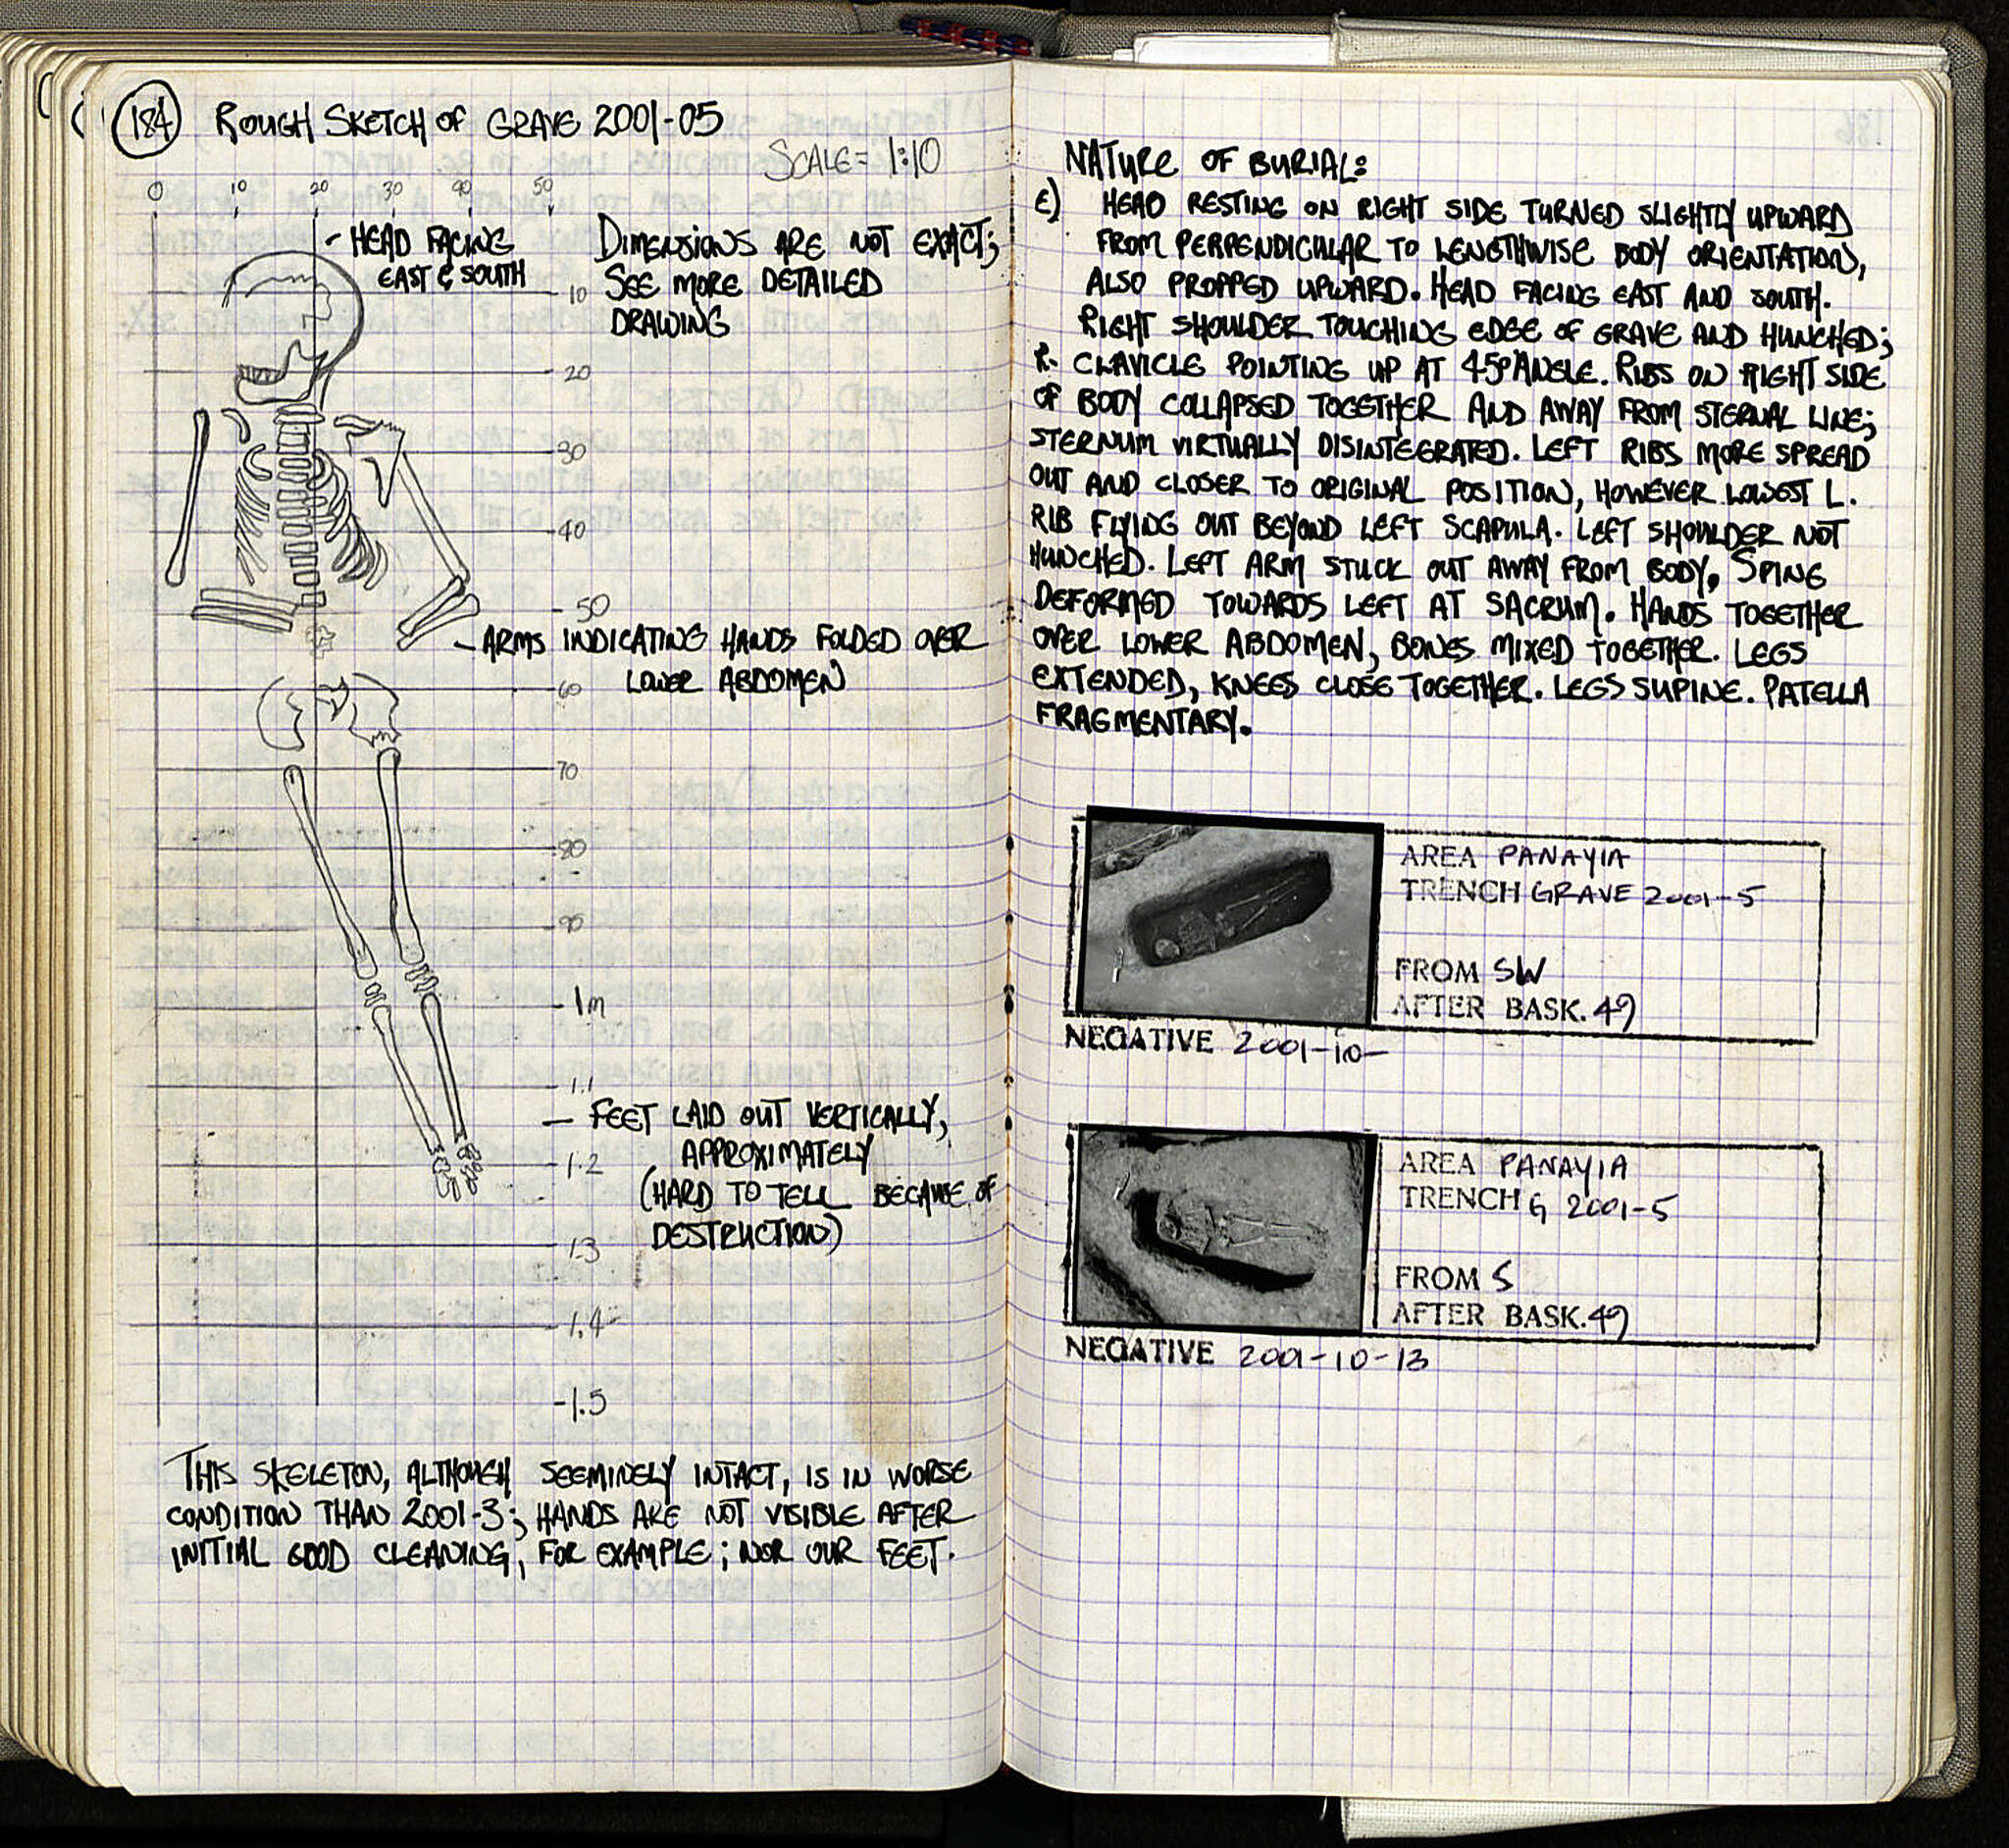 184 ROUGH SKETCH OF GRAVE 2001-05
SCALE= 1:10
0 10 20 30 40 50
- HEAD FACING
EAST & SOUTH
DIMENSIONS ARE NOT EXACT;
SEE MORE DETAILED
DRAWING
10
20
30
40
50
- ARMS INDICATING HANDS FOLDED OVER
LOWER ABDOMEN
60
70
80
90
1m
1.1
- FEET LAID OUT VERTICALLY,
APPROXIMATELY
(HARD TO TELL BECAUSE OF
DESTRUCTION)
1.2
1.3
1.4
1.5
THIS SKELETON, ALTHOUGH SEEMINELY INTACT, IS IN WORSE
CONDITION THAN 2001-3; HANDS ARE NOT VISIBLE AFTER
INITIAL GOOD CLEANING, FOR EXAMPLE; NOR OUR FEET.
NATURE OF BURIAL:
E) HEAD RESTING ON RIGHT SIDE TURNED SLIGHTLY UPWARD
FROM PERPENDICULAR TO LENGTHWISE BODY ORIENTATION,
ALSO PROPPED UPWARD. HEAD FACING EAST AND SOUTH.
RIGHT SHOULDER TOUCHING EDGE OF GRAVE AND HUNCHED;
R. CLAVICLE POINTING UP AT 45° ANGLE. RIBS ON RIGHT SIDE
OF BODY COLLAPSED TOGETHER AND AWAY FROM STERNAL LINE;
STERNUM VIRTUALLY DISINTEGRATED. LEFT RIBS MORE SPREAD
OUT AND CLOSER TO ORIGINAL POSITION, HOWEVER LOWEST L.
RIB FLYING OUT BEYOND LEFT SCAPULA. LEFT SHOULDER NOT
HUNCHED. LEFT ARM STUCK OUT AWAY FROM BODY, SPINE
DEFORMED TOWARDS LEFT AT SACRUM. HANDS TOGETHER
OVER LOWER ABDOMEN, BONES MIXED TOGETHER. LEGS
EXTENDED, KNEES CLOSE TOGETHER. LEGS SUPINE. PATELLA
FRAGMENTARY.
AREA PANAYIA
TRENCH GRAVE 2001-5
FROM SW
AFTER BASK. 49
NEGATIVE 2001-10-
AREA PANAYIA
TRENCH G 2001-5
FROM S
AFTER BASK. 49
NEGATIVE 2001-10-13